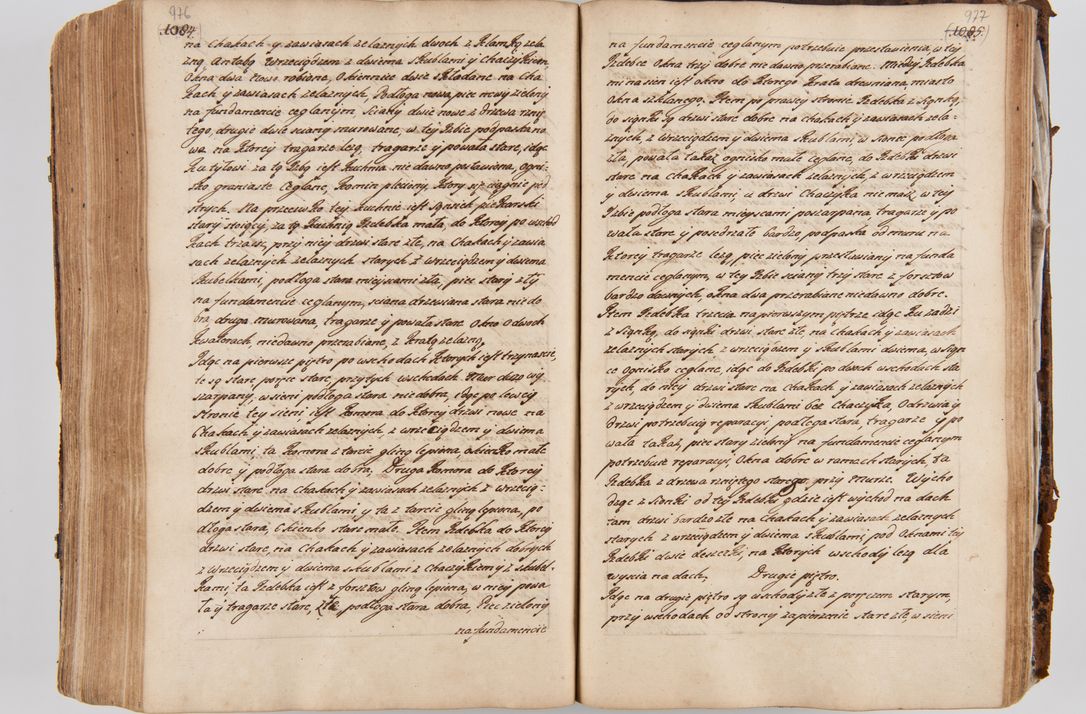 976
1084
na Chakach y zawiasach zelaznych dwoch z Klamką zela
zną Antabą Wrzeciądzem z dwiema Skublami y Chaczykiem
Okna dwa nowo robione, Okiennice dwie składane na Cha
kach y zawiasach zelaznych. Podłoga nowa, piec nowy zielony
na fundamencie ceglanym, Sciany dwie nowe z drzewa rznię
tego, drugie dwie sciany murowane, w tey Izbie podpasta no
wa na Ktorey tragarze lezą, tragarze y powała stare, idąc
Ku tyłowi za tą Izbą iest Kuchnia nie dawno postawiona, ogni
sko graniaste Ceglane, Komin pleciony, Ktory się ciągnie pod
strych. Na przeciwko tey Kuchnie iest Sąsiek piekarski
stary stoiący, za tą Kuchnią Izdebka mała, do Ktorey po wschod
kach trzech, przy niey drzwi stare złe, na Chakach y zawia
sach zelaznych zelaznych starych z Wrzeciądzem y dwiema
Skubelkami, podłoga stara mieyscami zła, piec stary zły
na fundamencie ceglanym, sciana drzewiana stara nie do
bra druga murowana, tragarze y powała stare Okno o dwoch
kwaterach, niedawno przerabiane, z Kratą zelazną
Idąc na pierwsze piętro po wschodach Ktorych iest trzynascie,
te są stare poręcz stare, przytych wschodach Mur długo wy
szarpany, w sieni podłoga stara niedobra, idąc po lewey
stronie tey sieni iest Komora do Ktorey drzwi nowe na
Chakach y zawiasach zelaznych, z wrzeciądzem y dwiema
Skublami, ta Komora z tarcic gliną lepiona, okienko małe
dobre y podłoga stara dobra, Druga Komora do Ktorey
drzwi stare na Chakach y zawiasach zelaznych z wrzecią-
dzem y dwiema Skublami y ta z tarcic gliną lepiona, po
dłoga stara, Okienko stare małe. Item Izdebka do Ktorey
drzwi stare, na Chakach y zawiasach zelaznych dobrych
z Wrzeciądzem y dwiema Skublami z Chaczykiem y z Skubel-
kami, ta Izdebka iest z forsztow gliną lepiona, w niey powa
ła y tragarze stare, złe, podłoga stara dobra, Piec zielony
na fundamencie
977
1085
na fundamencie ceglanym potrzebuie przestawienia, w tey
Izdebce Okna trzy dobre nie dawno przerabiane. Między Izdebka
mi na sien iest okno do Ktorego Krata drewniana, miasto
Okna szklanego. Item po prawey stronie Izdebka z Sionką,
do sionki są drzwi stare dobre na chakach y zawiasach zela-
znych, z wrzeciądzem y dwiema Skublami, w sionce podłoga
zła, powała takaz, ognisko małe ceglane, do Izdebki drzwi
stare na Chakach y zawiasach zelaznych, z wrzeciądzem
y dwiema Skublami, u drzwi Chaczyka nie masz, w tey
Izbie podłoga stara mieyscami poszarpana, tragarze y po
wała stare y posiedziałe bardzo, podpasta od muru na
Ktorey tragarze lezą, piec zielony przestawiany na funda
mencie ceglanym, w tey Izbie sciany trzy stare z forsztow
bardzo dawnych, okna dwa przerabiane niedawno dobre.
Item Izdebka trzecia na pierwszym piętrze idąc Ku zadzi
z Sionką, do sionki drzwi stare złe, na Chakach y zawiasach
zelaznych starych, z wrzeciądzem y Skublami dwiema, w Sion
ce ognisko ceglane, idąc do Izdebki po dwoch wschodach sta
rych, do niey drzwi stare na Chakach y zawiasach zelaznych
z wrzeciądzem y dwiema Skublami bez Chaczyka, Odrzwia y
drzwi potrzebuią reparacyi, podłoga stara, tragarze y po
wała takaz, piec stary zielony na fundamencie ceglanym
potrzebuie reparacyi, Okna dobre w ramach starych, ta
Izdebka z drzewa rzniętego starego, przy murze. Wycho
dząc z Sionki od tey Izdebki gdzie iest wychod na dach
tam drzwi bardzo złe na Chakach y zawiasach zelaznych
starych z wrzeciądzem y dwiema Skublami, pod Oknami tey
Izdebki dwie deszczki, na Ktorych wschody lezą dla
wyscia na dach, Drugie piętro.
Idąc na drugie piętro są wschody złe z poręczem starym,
przy wschodach od strony zapierzenie stare złe, w sieni